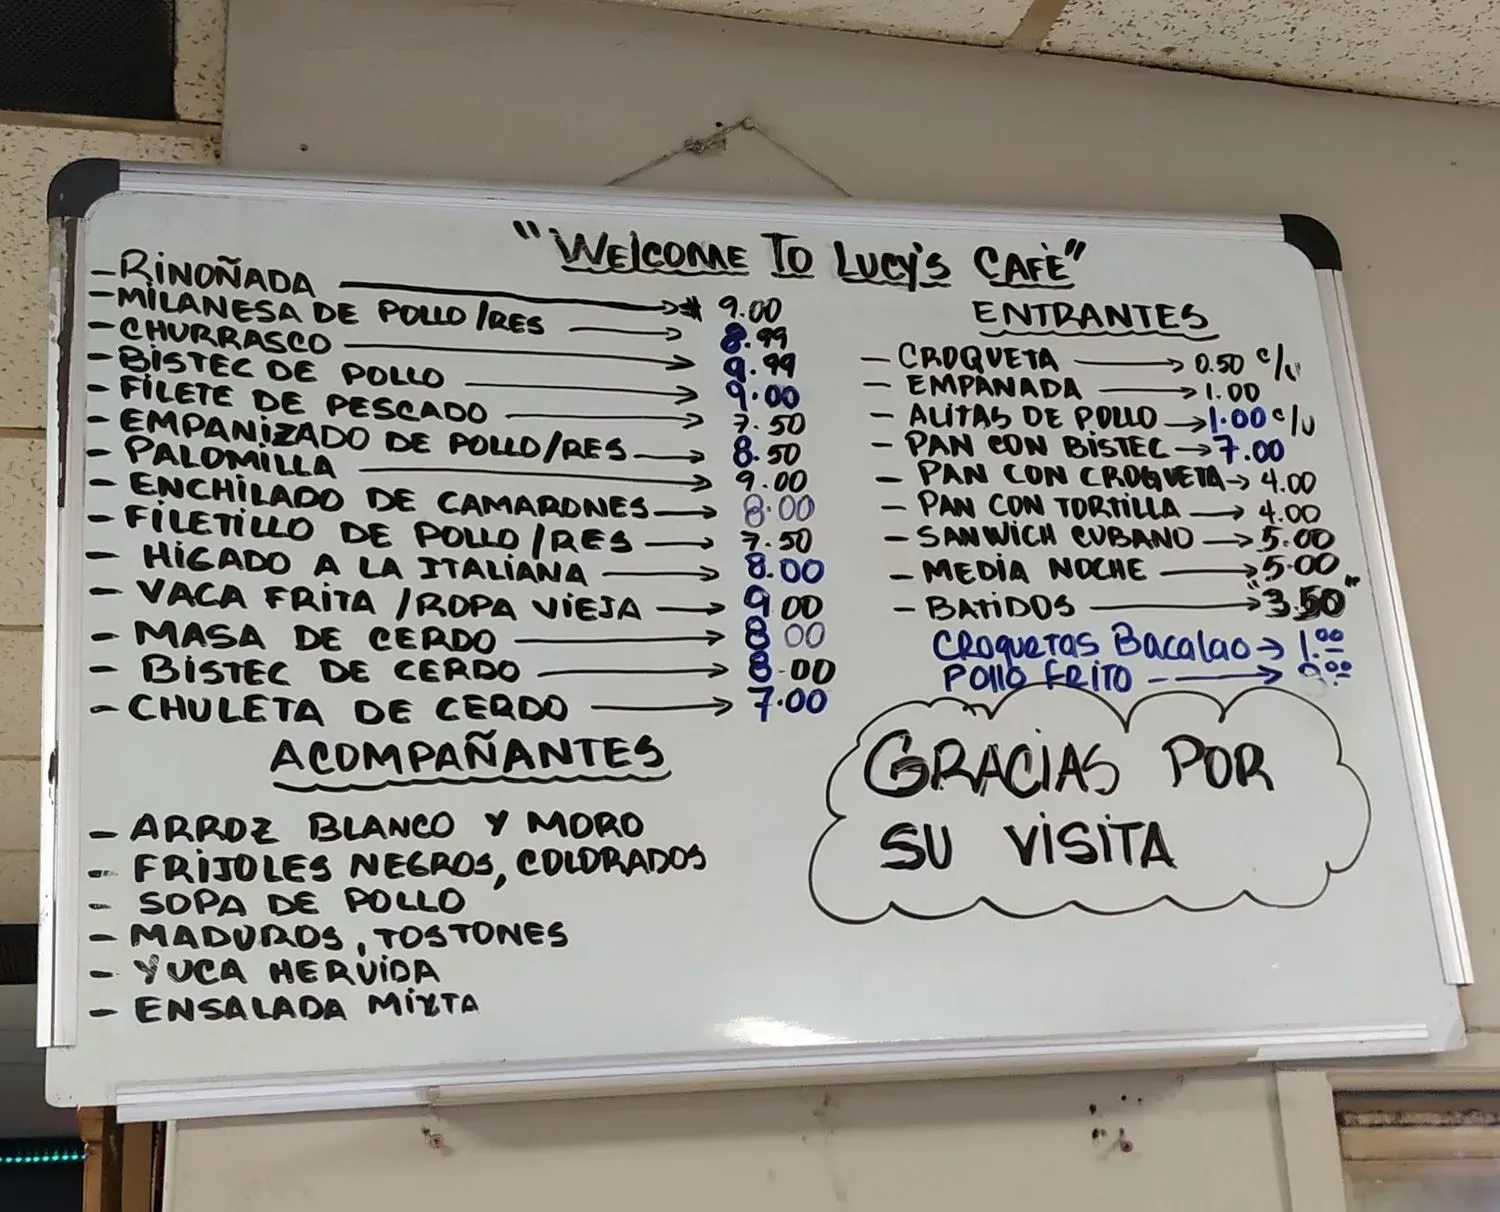 "WELCOME TO LUCY'S CAFÈ"
- RIÑOÑADA → $ 9.00
- MILANESA DE POLLO/RES → 8.99
- CHURRASCO → 9.99
- BISTEC DE POLLO → 9.00
- FILETE DE PESCADO → 7.50
- EMPANIZADO DE POLLO/RES → 8.50
- PALOMILLA → 9.00
- ENCHILADO DE CAMARONES → 8.00
- FILETILLO DE POLLO/RES → 7.50
- HIGADO A LA ITALIANA → 8.00
- VACA FRITA/ROPA VIEJA → 9 00
- MASA DE CERDO → 8 00
- BISTEC DE CERDO → 8.00
- CHULETA DE CERDO → 7.00
ACOMPAÑANTES
- ARROZ BLANCO Y MORO
- FRIJOLES NEGROS, COLORADOS
- SOPA DE POLLO
- MADUROS, TOSTONES
- YUCA HERVIDA
- ENSALADA MIXTA
ENTRANTES
- CROQUETA → 0.50 c/u
- EMPANADA → 1.00
- ALITAS DE POLLO → 1.00 c/u
- PAN CON BISTEC → 7.00
- PAN CON CROQUETA → 4.00
- PAN CON TORTILLA → 4.00
- SANWICH CUBANO → 5.00
- MEDIA NOCHE → 5.00
- BATIDOS → "3.50"
CROQUETAS BACALAO → 1.00
POLLO FRITO - →
GRACIAS POR
SU VISITA